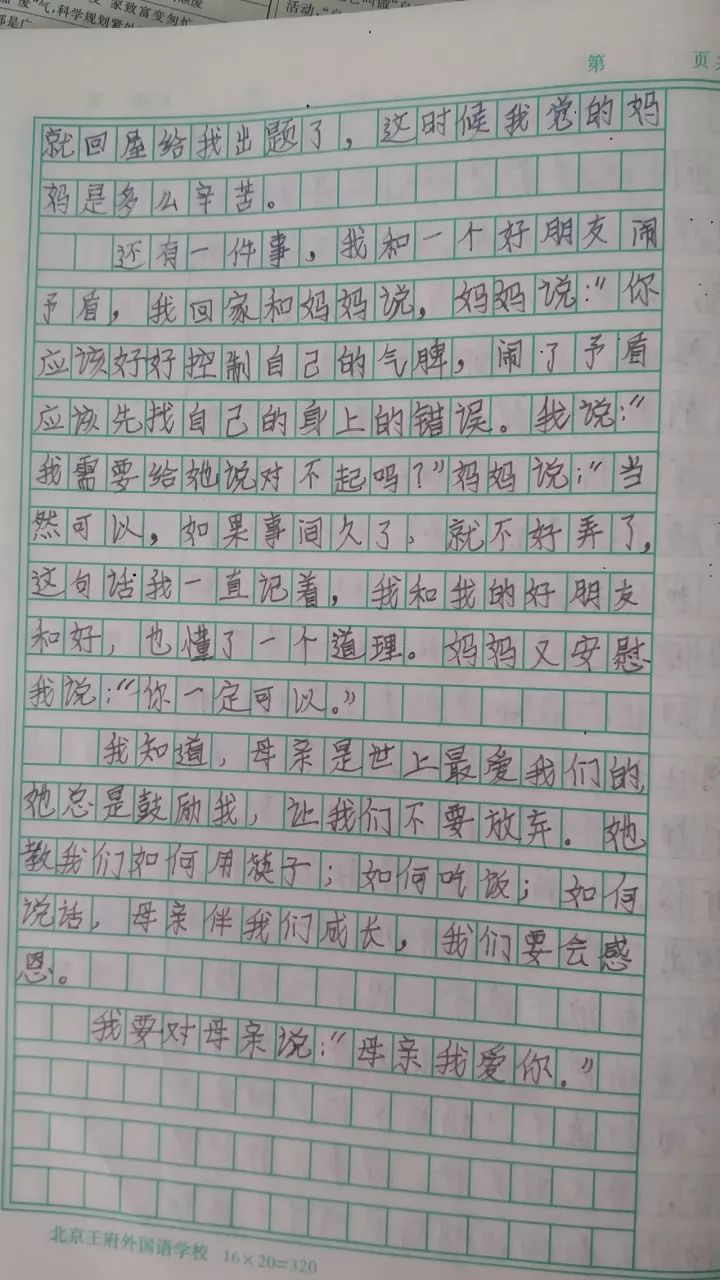 气，科学规划紧
家致富变匆忙
活动，"白
第 页
就回屋给我出题了，这时候我觉的妈
妈是多么辛苦。
还有一件事，我和一个好朋友闹
予盾，我回家和妈妈说，妈妈说："你
应该好好控制自己的气脾，闹了予盾
应该先找自己的身上的错误。我说："
我需要给她说对不起吗？"妈妈说："当
然可以，如果事间久了，就不好弄了，
这句话我一直记着，我和我的好朋友
和好，也懂了一个道理。妈妈又安慰
我说："你一定可以。"
我知道，母亲是世上最爱我们的，
她总是鼓励我，让我们不要放弃。她
教我们如何用筷子；如何吃饭；如何
说话，母亲伴我们成长，我们要会感
恩。
我要对母亲说："母亲我爱你。"
北京王府外国语学校 16×20=320